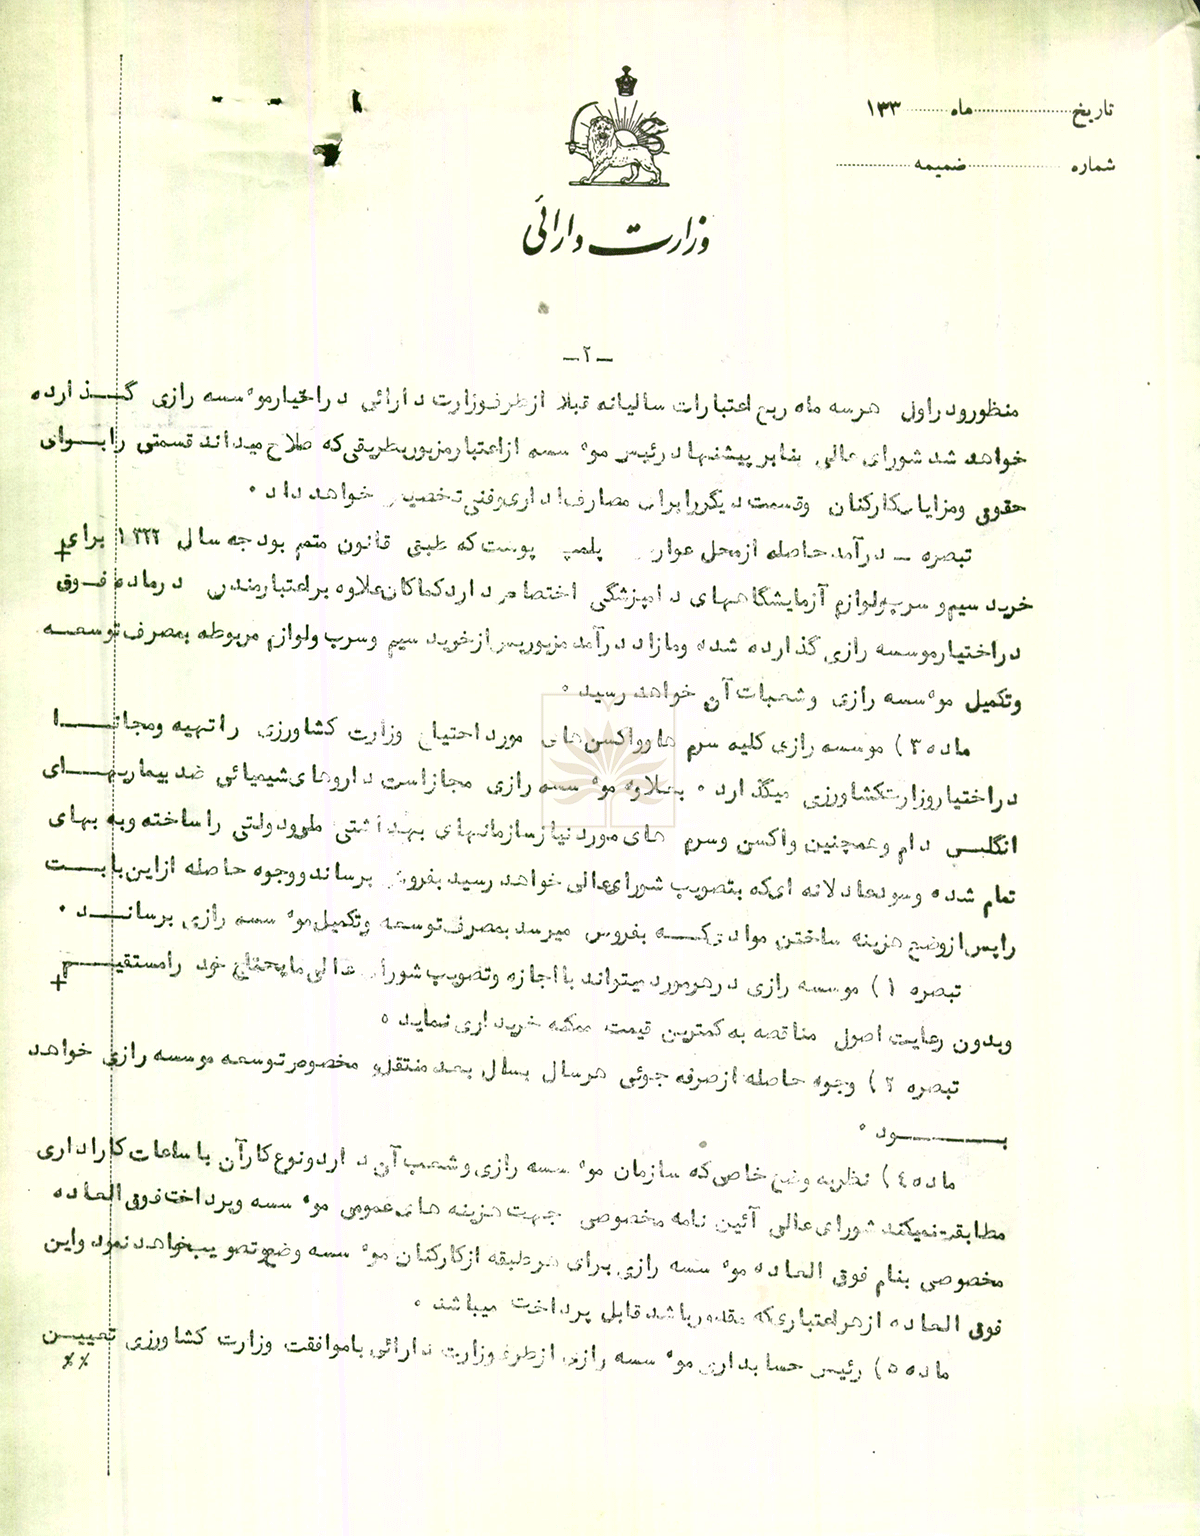 تاریخ ............ ماه ........ ۱۳۳
شماره ............ ضمیمه ............
وزارت دارائی
ـ۲ـ
منظور و در اول هر سه ماه ربع اعتبارات سالیانه قبلا از طرف وزارت دارائی در اختیار موٴسسه رازی گـــذارده
خواهد شد شورای عالی بنابر پیشنهاد رئیس موٴسسه از اعتبار مزبور بطریقی که صلاح میداند قسمتی را بـــرای
حقوق و مزایای کارکنان و قسمت دیگر را برای مصارف اداری و فنی تخصیص خواهد داد ۰
تبصره ـ درآمد حاصله از محل عوارض پلمپ پوست که طبق قانون متمم بودجه سال ۱۳۲۲ برای
خرید سیم و سرب و لوازم آزمایشگاههای دامپزشگی اختصاص دارد کماکان علاوه بر اعتبار مندرج در ماده فـــوق
در اختیار موسسه رازی گذارده شده و مازاد درآمد مزبور پس از خرید سیم و سرب و لوازم مربوطه بمصرف توسعـــه
و تکمیل موٴسسه رازی و شعبات آن خواهد رسید ۰
ماده ۳) موسسه رازی کلیه سرم ها و واکسن های مورد احتیاج وزارت کشاورزی را تهیه و مجانـــا
در اختیار وزارت کشاورزی میگذارد ۰ بعلاوه موٴسسه رازی مجاز است داروهای شیمیائی ضد بیماریهـــای
انگلـــی دام و همچنین واکسن و سرم های مورد نیاز سازمانهای بهداشتی ملی و دولتی را ساخته و به بهای
تمام شده و سود عادلانه ای که بتصویب شورای عالی خواهد رسید بفروش برساند و وجوه حاصله از این بابـــت
را پس از وضع هزینه ساختن موادی کـــه بفروش میرسد بمصرف توسعه و تکمیل موٴسسه رازی برسانـــد ۰
تبصره ۱) موسسه رازی در هر مورد میتواند با اجازه و تصویب شورای عالی مایحتاج خود را مستقیـــم
و بدون رعایت اصول مناقصه به کمترین قیمت ممکنه خریداری نماید ۰
تبصره ۲) وجوه حاصله از صرفه جوئی هر سال بسال بعد منتقل و مخصوص توسعه موسسه رازی خواهد
بـــــود ۰
ماده ۴) نظر به وضع خاصی که سازمان موٴسسه رازی و شعب آن دارد و نوع کار آن با ساعات کار اداری
مطابقت نمیکند شورای عالی آئین نامه مخصوصی جهت هزینه های عمومی موٴسسه و پرداخت فوق العاده
مخصوصی بنام فوق العاده موٴسسه رازی برای هر طبقه از کارکنان موٴسسه وضع و تصویب خواهد نمود و این
فوق العاده از هر اعتباری که مقدور باشد قابل پرداخت میباشد ۰
ماده ۵) رئیس حسابداری موٴسسه رازی از طرف وزارت دارائی با موافقت وزارت کشاورزی تعییـــن
٪٪